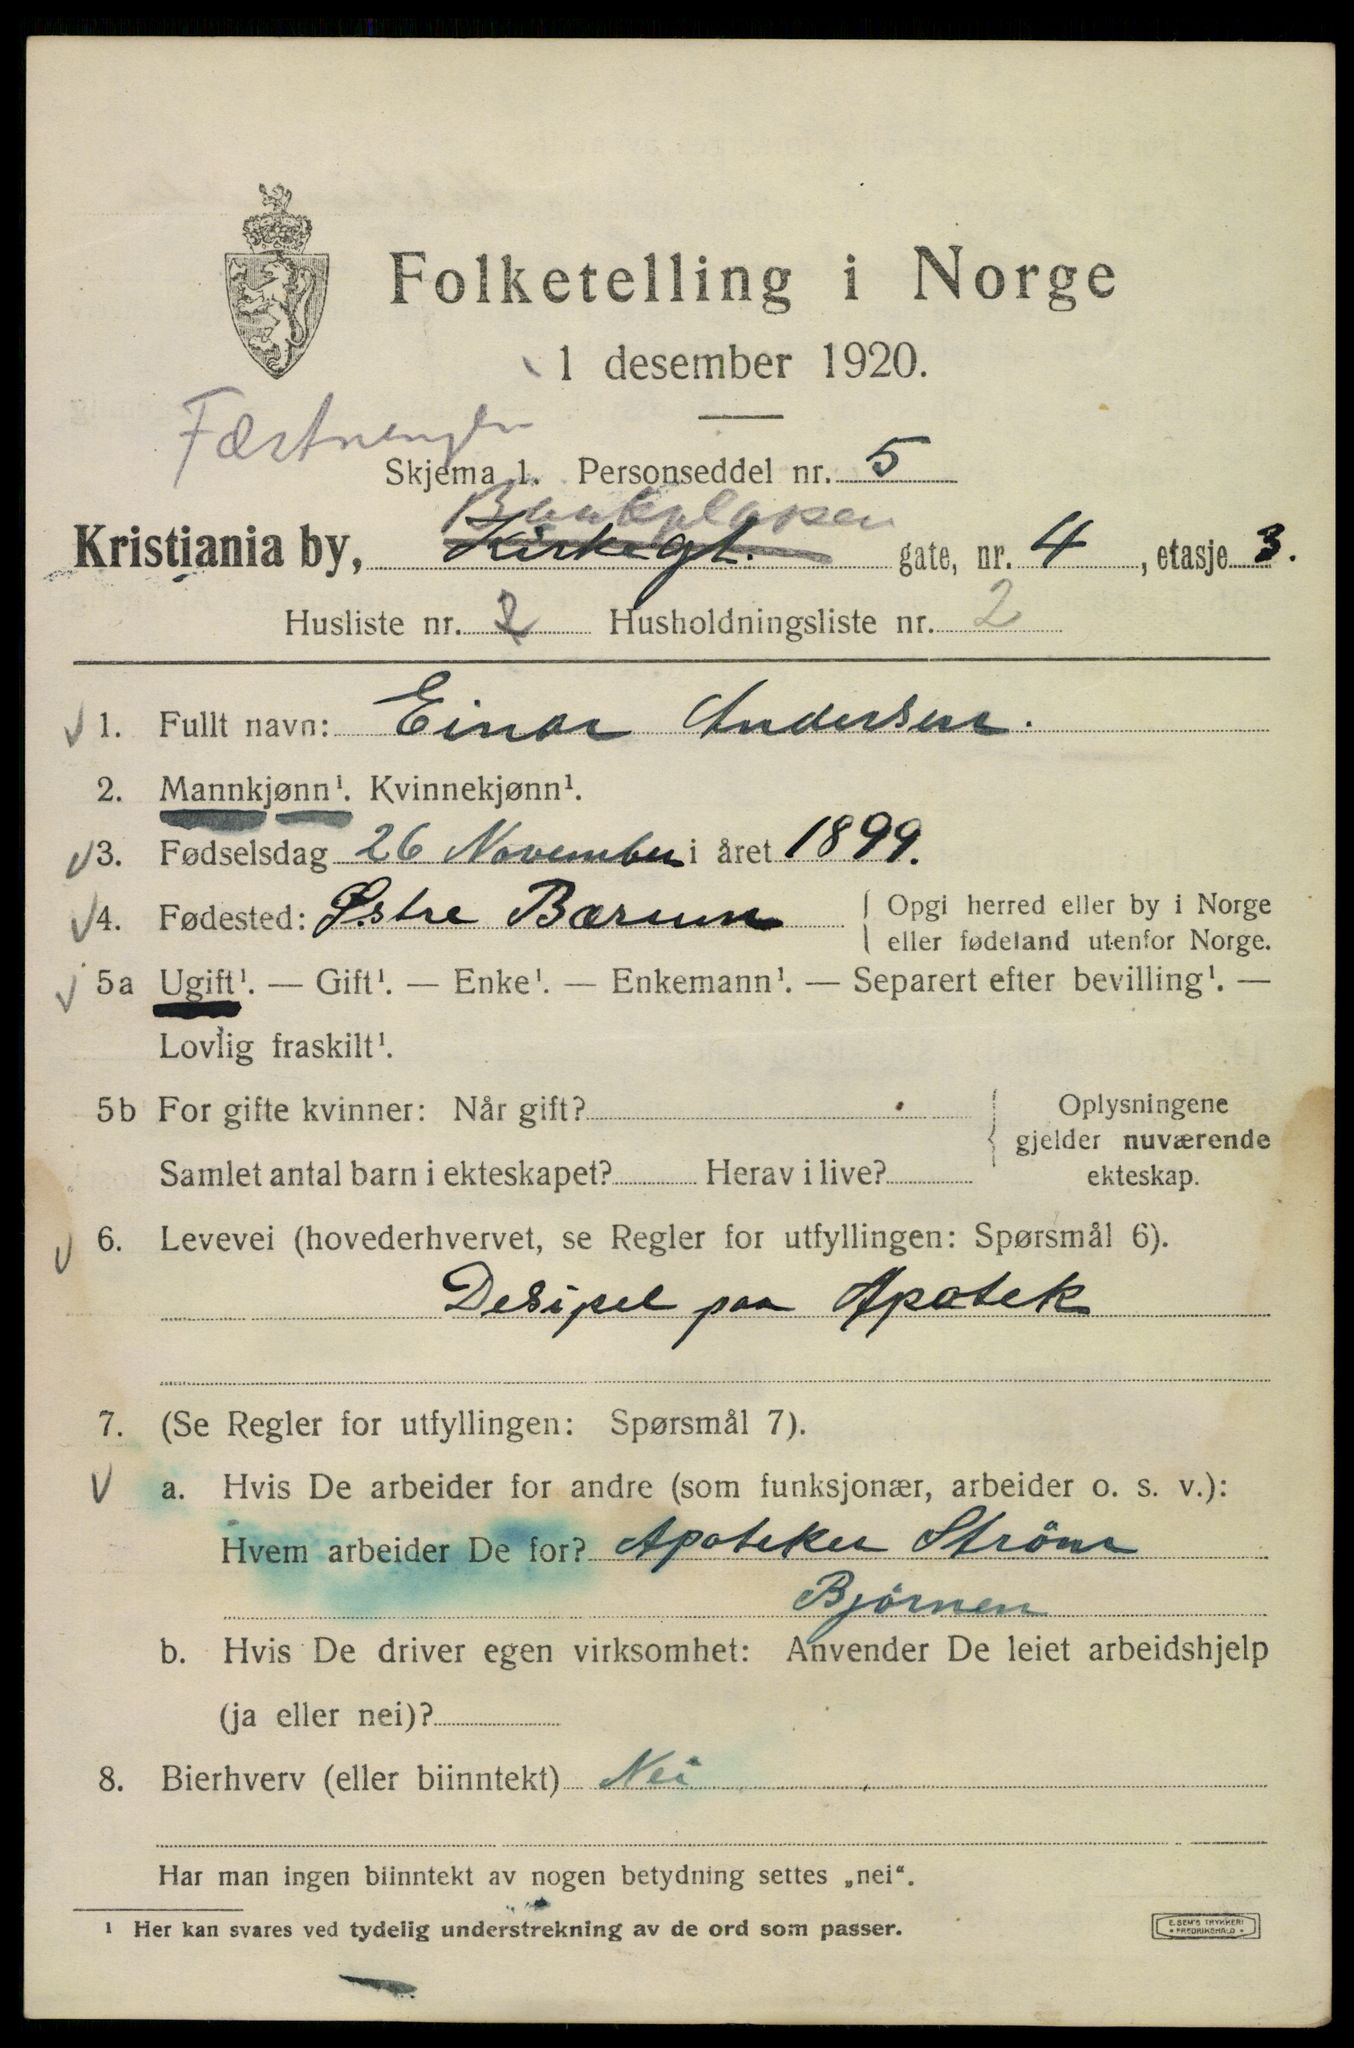 Folketelling i Norge
1 desember 1920.
Fæstningen
Skjema 1. Personseddel nr. 5
Bankplassen
Kristiania by, Kirkegt. gate, nr. 4, etasje 3.
Husliste nr. 2 Husholdningsliste nr. 2
1. Fullt navn: Einar Andersen.
2. Mannkjønn¹. Kvinnekjønn¹.
3. Fødselsdag 26 November i året 1899.
4. Fødested: Østre Bærum { Opgi herred eller by i Norge
eller fødeland utenfor Norge.
5a Ugift¹. — Gift¹. — Enke¹. — Enkemann¹. — Separert efter bevilling¹. —
Lovlig fraskilt¹.
5b For gifte kvinner: Når gift? Oplysningene
gjelder nuværende
Samlet antal barn i ekteskapet? Herav i live? ekteskap.
6. Levevei (hovederhvervet, se Regler for utfyllingen: Spørsmål 6).
Desipel paa Apotek
7. (Se Regler for utfyllingen: Spørsmål 7).
a. Hvis De arbeider for andre (som funksjonær, arbeider o. s. v.):
Hvem arbeider De for? Apoteker Ström
Bjørnen
b. Hvis De driver egen virksomhet: Anvender De leiet arbeidshjelp
(ja eller nei)?
8. Bierhverv (eller biinntekt) Nei
Har man ingen biinntekt av nogen betydning settes „nei“.
¹ Her kan svares ved tydelig understrekning av de ord som passer.
E. SEM'S TRYKKERI
• FREDRIKSHALD •